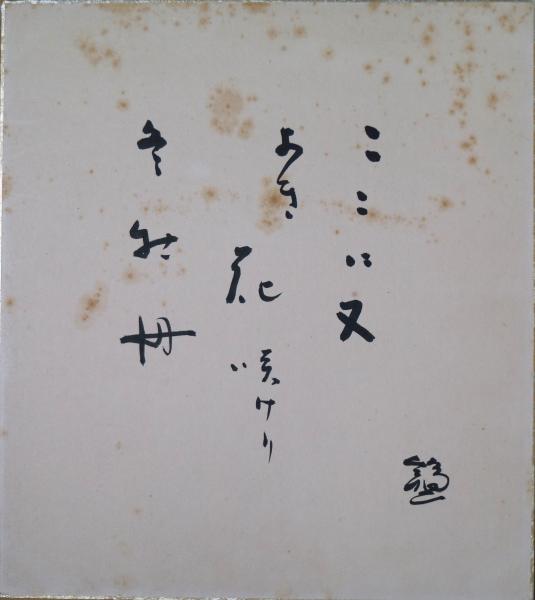 ここに又
よき
花咲けり
冬牡丹